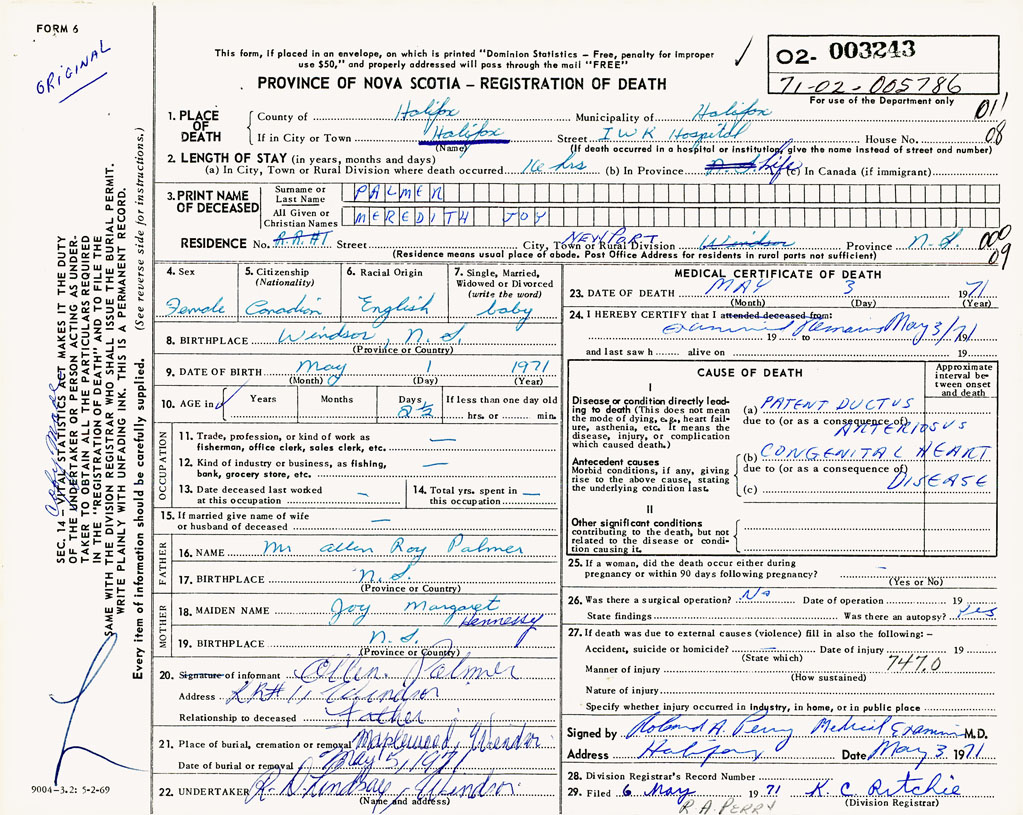 FORM 6
ORIGINAL
This form, if placed in an envelope, on which is printed "Dominion Statistics – Free, penalty for improper
use $50," and properly addressed will pass through the mail "FREE"
PROVINCE OF NOVA SCOTIA – REGISTRATION OF DEATH
02- 003243
71-02-005786
For use of the Department only
1. PLACE OF DEATH
County of Halifax Municipality of Halifax 01
If in City or Town Halifax Street I W K Hospital House No. 08
(Name) (If death occurred in a hospital or institution, give the name instead of street and number)
2. LENGTH OF STAY (in years, months and days)
(a) In City, Town or Rural Division where death occurred 16 hrs (b) In Province N.S. Life (c) In Canada (if immigrant)
3. PRINT NAME OF DECEASED
Surname or Last Name PALMER
All Given or Christian Names MEREDITH JOY
RESIDENCE No. R.R.#1 Street City, Town or Rural Division NEWPORT Windsor Province N.S. 000
(Residence means usual place of abode. Post Office Address for residents in rural parts not sufficient) 09
4. Sex Female
5. Citizenship (Nationality) Canadian
6. Racial Origin English
7. Single, Married, Widowed or Divorced (write the word) baby
8. BIRTHPLACE Windsor, N.S.
(Province or Country)
9. DATE OF BIRTH May 1 1971
(Month) (Day) (Year)
10. AGE in Years Months Days 2½ If less than one day old
hrs. or min.
OCCUPATION
11. Trade, profession, or kind of work as fisherman, office clerk, sales clerk, etc. —
12. Kind of industry or business, as fishing, bank, grocery store, etc. —
13. Date deceased last worked at this occupation —
14. Total yrs. spent in this occupation —
15. If married give name of wife or husband of deceased —
FATHER
16. NAME Mr Allen Roy Palmer
17. BIRTHPLACE N.S.
(Province or Country)
MOTHER
18. MAIDEN NAME Joy Margaret Hennessy
19. BIRTHPLACE N.S.
(Province or Country)
20. Signature of informant Allen Palmer
Address RR#1, Windsor
Relationship to deceased Father
21. Place of burial, cremation or removal Maplewood, Windsor
Date of burial or removal May 5, 1971
22. UNDERTAKER R. D. Lindsay, Windsor
(Name and address)
MEDICAL CERTIFICATE OF DEATH
23. DATE OF DEATH MAY 3 1971
(Month) (Day) (Year)
24. I HEREBY CERTIFY that I attended deceased from:
Examined Remains May 3/71
19 to 19
and last saw h alive on 19
CAUSE OF DEATH
Approximate interval between onset and death
I
Disease or condition directly leading to death (This does not mean the mode of dying, e.g., heart failure, asthenia, etc. It means the disease, injury, or complication which caused death.)
(a) PATENT DUCTUS
due to (or as a consequence of)
ARTERIOSUS
Antecedent causes
Morbid conditions, if any, giving rise to the above cause, stating the underlying condition last.
(b) CONGENITAL HEART
due to (or as a consequence of)
DISEASE
(c)
II
Other significant conditions
contributing to the death, but not related to the disease or condition causing it.
25. If a woman, did the death occur either during
pregnancy or within 90 days following pregnancy? —
(Yes or No)
26. Was there a surgical operation? No Date of operation 19
State findings Was there an autopsy? Yes
27. If death was due to external causes (violence) fill in also the following: –
Accident, suicide or homicide? — Date of injury 19
(State which)
Manner of injury 747.0
(How sustained)
Nature of injury
Specify whether injury occurred in industry, in home, or in public place
Signed by Roland A. Perry Medical Examiner M.D.
Address Halifax Date May 3 1971
28. Division Registrar's Record Number
29. Filed 6 May 1971 K. C. Ritchie
(Division Registrar)
R. A. PERRY
SEC. 14 – VITAL STATISTICS ACT MAKES IT THE DUTY
OF THE UNDERTAKER OR PERSON ACTING AS UNDER-
TAKER TO OBTAIN ALL THE PARTICULARS REQUIRED
IN THE "REGISTRATION OF DEATH" AND TO FILE THE
SAME WITH THE DIVISION REGISTRAR WHO SHALL ISSUE THE BURIAL PERMIT.
WRITE PLAINLY WITH UNFADING INK. THIS IS A PERMANENT RECORD.
Every item of information should be carefully supplied. (See reverse side for instructions.)
Copy Made
9004-3.2: 5-2-69